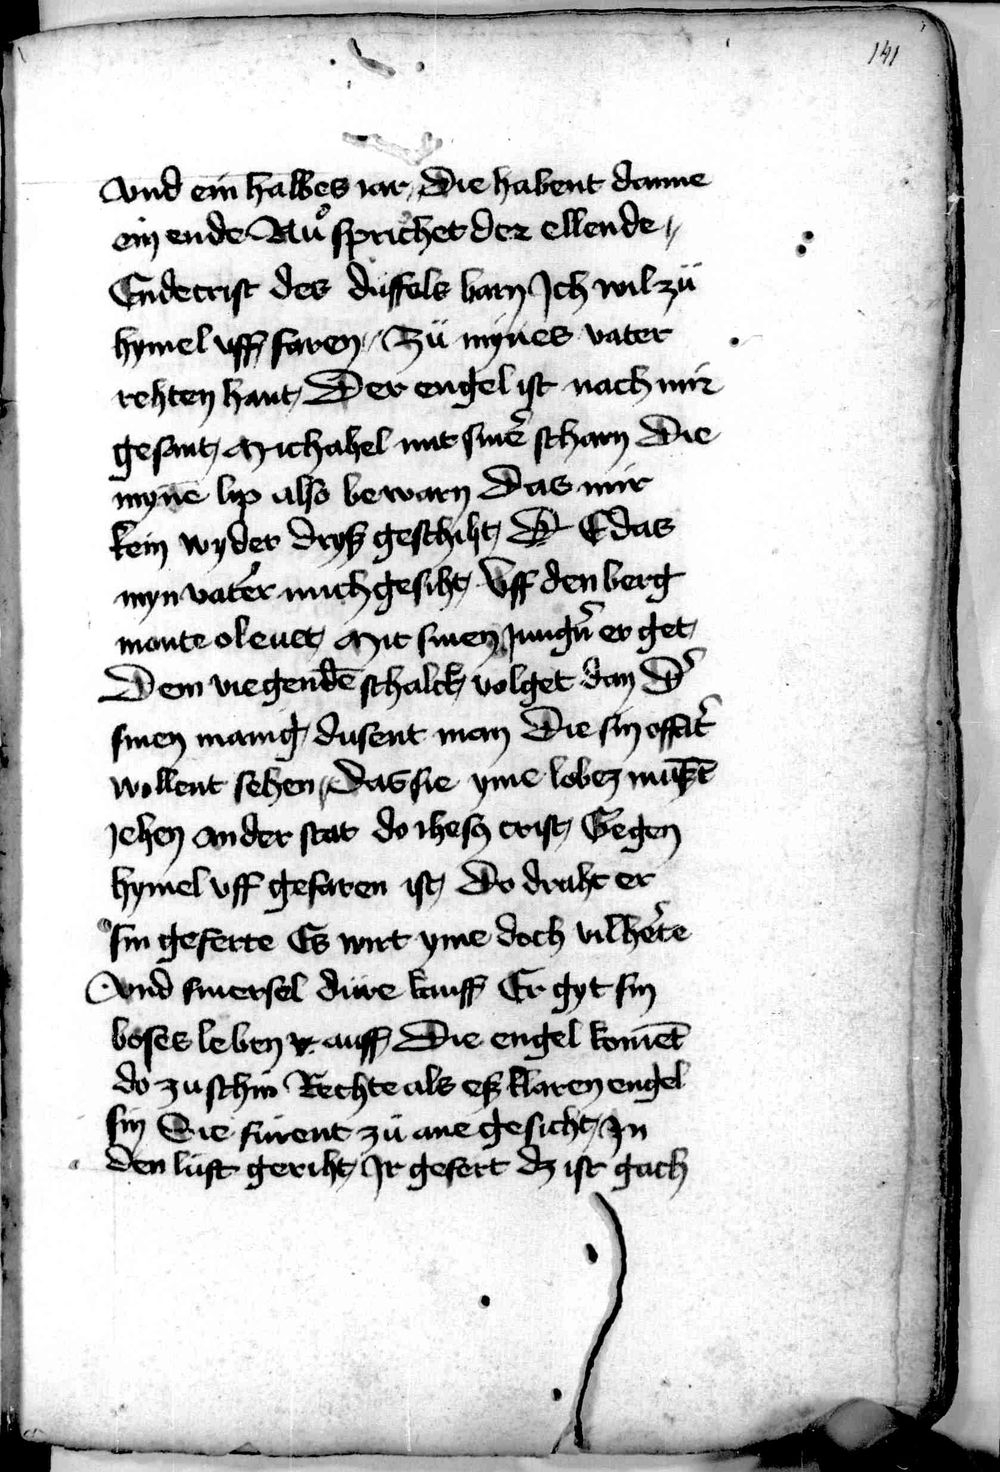 141
Vnd ein halbes iar / Die habent danne
ein ende Nuͦ sprichet der ellende //
Endecrist des duͤffels barn Ich wil zuͤ
hymel vff faren / Zuͤ mynes vater
rehten hant / Der engel ist nach mir
gesant / Michahel mit sinẽ scharn Die
mynē lip also bewarn Das mir
kein wyder dryß geschiht / E das
myn vater mich gesiht / Vff den berg
monte oleuet / Mit sinen Jungn̄ er get /
Dem viegendē schalck / volget dan
sinen manig / dusent man Die sin offart
wollent sehen / Das sie yme lobez muͤßēt
Jehen an der stat do ihesꝫ crist / Gegen
hymel vff gefaren ist / Do draht er
sin geferte Es wirt yme doch vil herte
Vnd siner sel duͤre kauff Er gyt sin
boses leben auff / Die engel komēt
do zu schin Rechte als eß klaren engel
sin Sie fuͤrent zuͤ ane gesicht / In
den luͤft geriht / Ir gefert dz ist gach